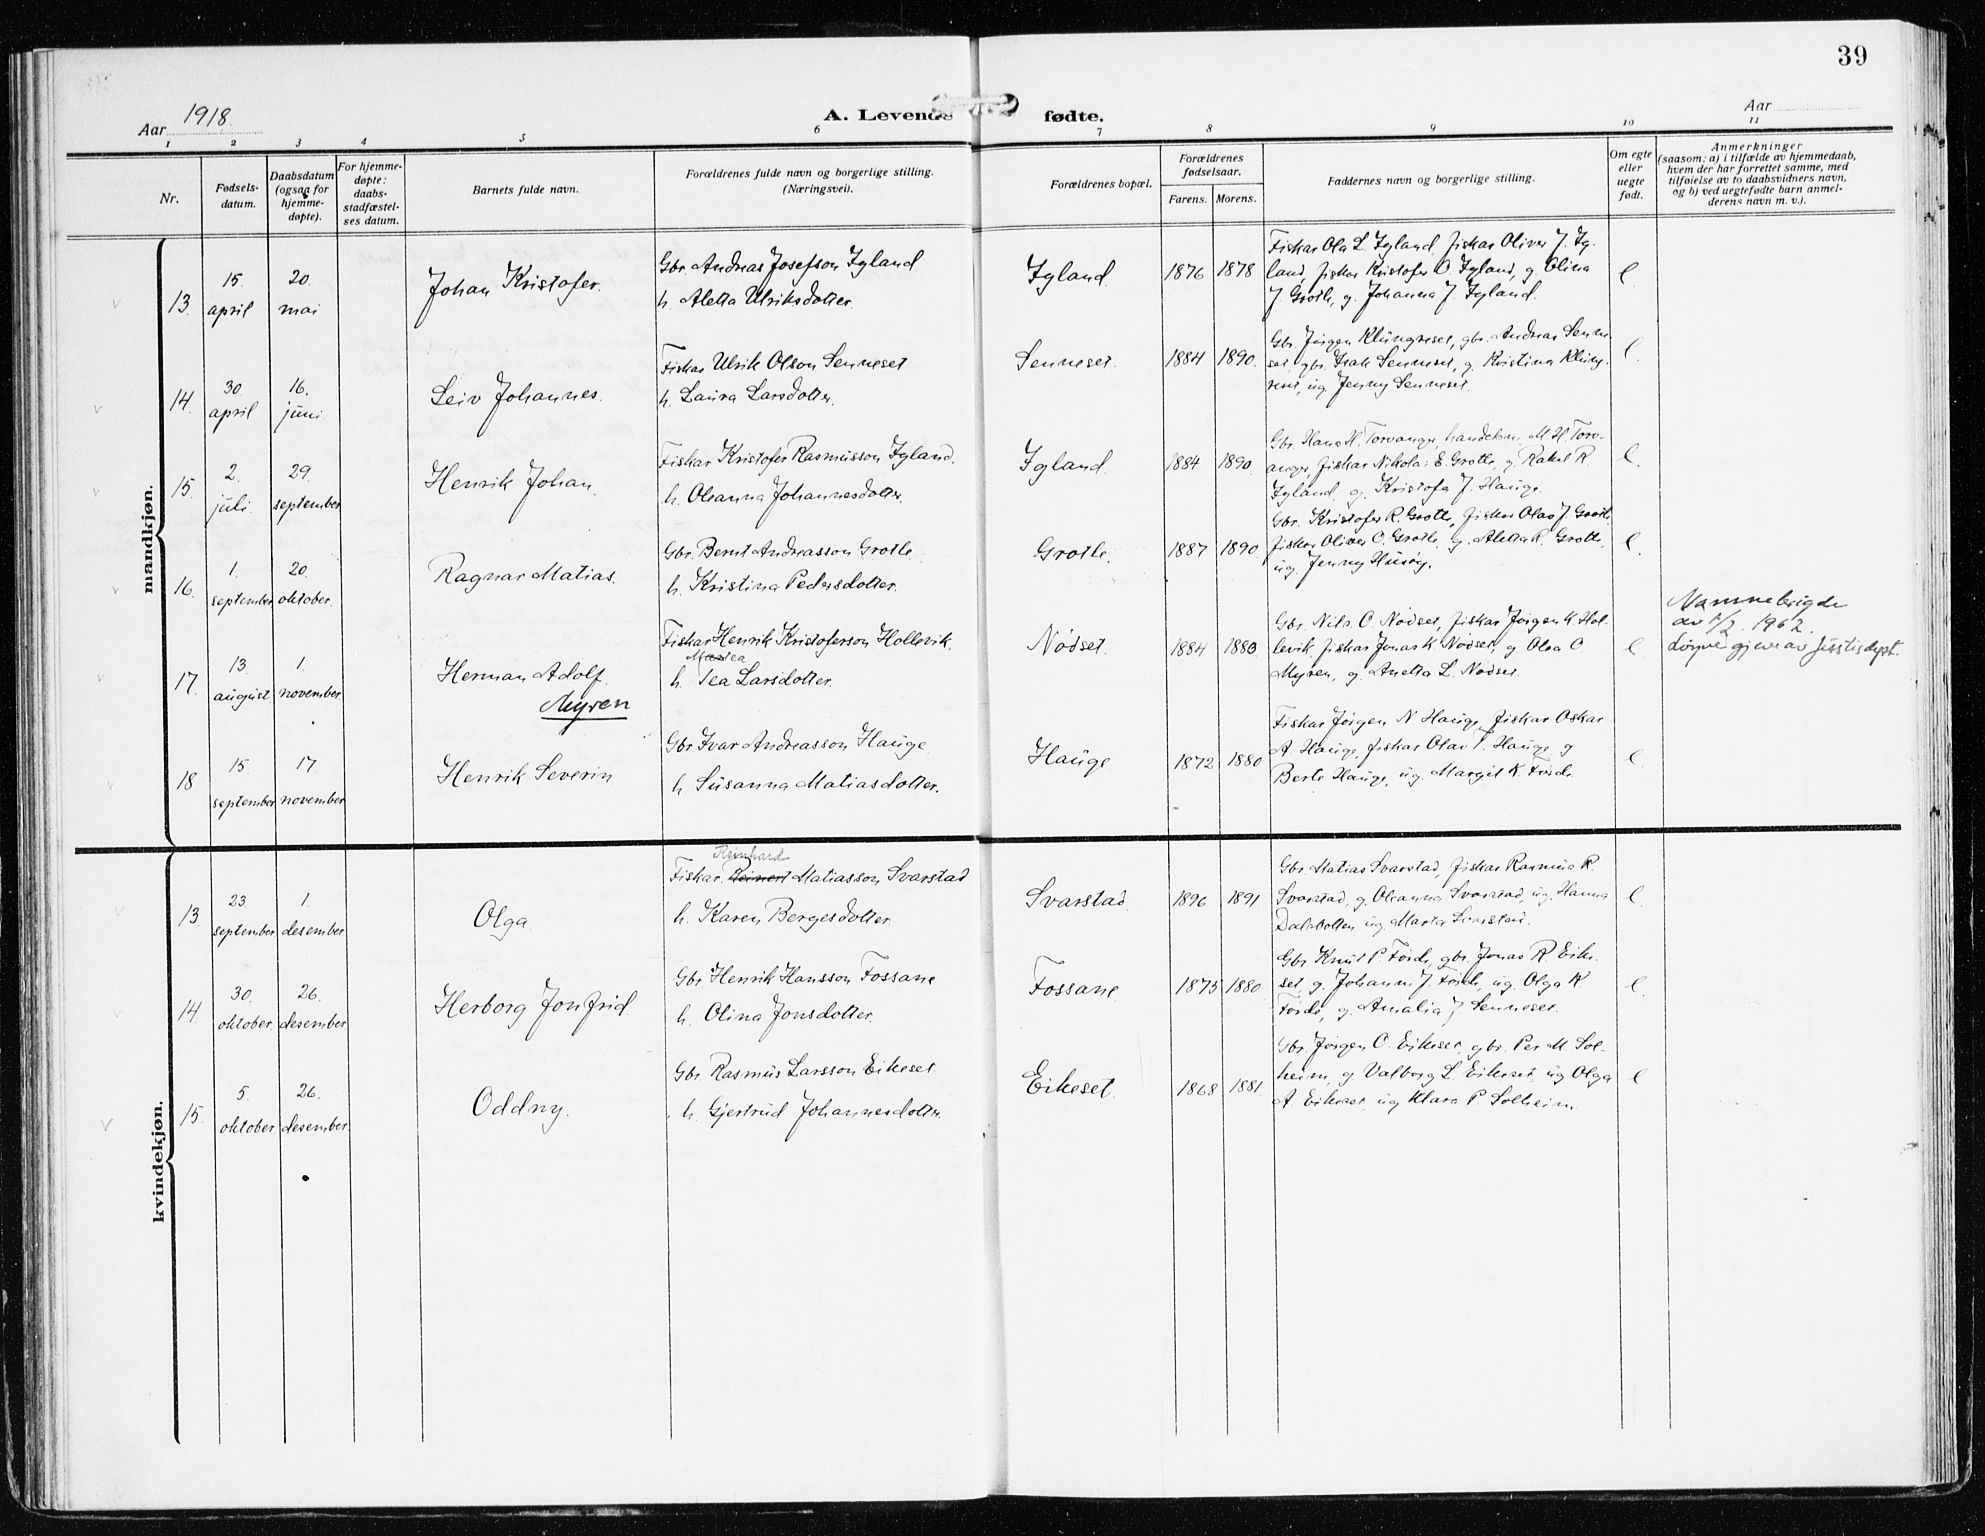 39
Aar 1918.
A. Levende fødte.
Aar
1 2 3 4 5 6 7 8 9 10 11
Nr.
Fødsels-
datum.
Daabsdatum
(ogsaa for
hjemme-
døpte).
For hjemme-
døpte:
daabs-
stadfæstel-
ses datum.
Barnets fulde navn.
Forældrenes fulde navn og borgerlige stilling.
(Næringsvei).
Forældrenes bopæl.
Forældrenes
fødselsaar.
Farens. Morens.
Faddernes navn og borgerlige stilling.
Om egte
eller
uegte
født.
Anmerkninger
(saasom: a) i tilfælde av hjemmedaab,
hvem der har forrettet samme, med
tilføielse av to daabsvidners navn,
og b) ved uegtefødte barn anmel-
derens navn m. v.).
mandkjøn.
13. 15. april 20. mai Johan Kristofer.
Gbr. Andreas Josefson Igland
h. Aletta Ulriksdotter.
Igland. 1876 1878
Fiskar Ola L. Igland, fiskar Oliver J. Ig-
land, fiskar Kristofer O. Igland, g. Olina
J. Grotle, g. Johanna J. Igland.
e.
14. 30. april 16. juni. Leiv Johannes.
Fiskar Ulrik Olson Senneset
h. Laura Larsdotter.
Senneset. 1884 1890.
Gbr. Jørgen Klungreset, gbr. Andreas Senne-
set, gbr. Isak Senneset, g. Kristina Kling-
reset, ug. Jenny Senneset.
e.
15. 2. juli. 29. september Henrik Johan.
Fiskar Kristofer Rasmusson Igland.
h. Oleanna Johannesdotter.
Igland. 1884 1890.
Gbr. Hans H. Torvanger, handelsm. M. H. Torv-
anger, fiskar Nikolai E. Grotle, g. Rakel R.
Igland, g. Kristofa J. Hauge.
e.
16. 1. september 20. oktober. Ragnar Matias.
Gbr. Bernt Andreasson Grotle.
h. Kristina Pedersdotter.
Grotle. 1887 1890.
Gbr. Kristofer R. Grotle, fiskar Olav J. Grotle,
fiskar Oliver O. Grotle, g. Aletta R. Grotle,
ug. Jenny Husøy.
e.
17. 13. august 1. november. Herman Adolf.
Myren
Fiskar Henrik Kristoferson Hollevik.
h. Tea Larsdotter.
Nødset. 1884 1880
Gbr. Nils O. Nødset, fiskar Jørgen K. Hol-
levik, fiskar Jonas K. Nødset, g. Olea O.
Myren, g. Anetta L. Nødset.
e.
Namnebrigde
av 1/2. 1962.
løyve gjeve av Justisdept.
18 15. september 17. november Henrik Severin.
Gbr. Ivar Andreasson Hauge.
h. Susanna Matiasdotter.
Hauge 1872 1880
Fiskar Jørgen N. Hauge, fiskar Oskar
A. Hauge, fiskar Olav P. Hauge, g.
Berte Hauge, ug. Margit K. Førde.
e.
kvindekjøn.
13. 23. september 1. desember Olga.
Reinhard
Fiskar Reinert Matiasson Svarstad
h. Karen Bergesdotter.
Svarstad. 1896 1891
Gbr. Matias Svarstad, fiskar Rasmus R.
Svarstad, g. Oleanna Svarstad, ug. Hanna
Dalsbotten ug. Marta Svarstad.
e.
14. 30. oktober. 26. desember Herborg Jonfrid.
Gbr. Henrik Hansson Fossane
h. Olina Jonsdotter.
Fossane 1875 1880
Gbr. Knut P. Førde, gbr. Jonas R. Eike-
set, g. Johanne J. Førde, ug. Olga K.
Førde, g. Amalia J. Senneset.
e.
15. 5. oktober 26. desember. Oddny.
Gbr. Rasmus Larsson Eikeset
h. Gjertrud Johannesdotter.
Eikeset. 1868 1881
Gbr. Jørgen O. Eikeset, gbr. Per M. Sol-
heim, g. Valborg L. Eikeset, ug. Olga
A. Eikeset, ug. Klara P. Solheim.
e